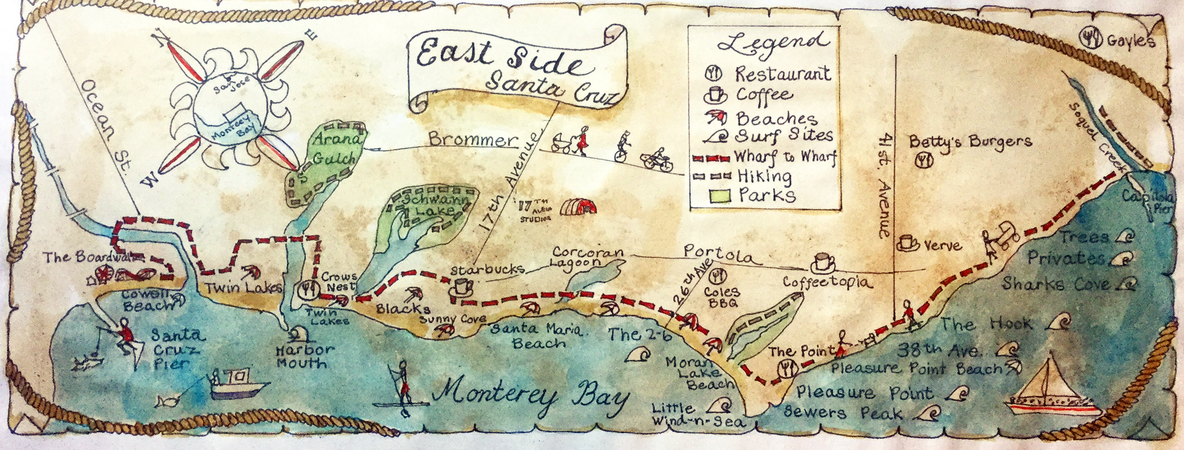 East Side
Santa Cruz
Legend
Restaurant
Coffee
Beaches
Surf Sites
Wharf to Wharf
Hiking
Parks
Gayles
Ocean St.
N
E
S
W
San Jose
Monterey
Bay
Arana
Gulch
Brommer
17th Avenue
Schwann
Lake
17TH
AVENUE
STUDIOS
41st. Avenue
Betty's Burgers
Soquel Creek
Capitola
Pier
The Boardwalk
Cowell
Beach
Twin Lakes
Crows
Nest
Twin
Lakes
Blacks
Starbucks
Sunny Cove
Corcoran
Lagoon
Portola
26th Ave
Coles
BBQ
Coffeetopia
Verve
Trees
Privates
Sharks Cove
Santa
Cruz
Pier
Harbor
Mouth
Santa Maria.
Beach
The 2-6
Moran
Lake
Beach
The Point
The Hook
38th Ave.
Pleasure Point Beach
Pleasure Point
Sewers Peak
Little
Wind-n-Sea
Monterey Bay